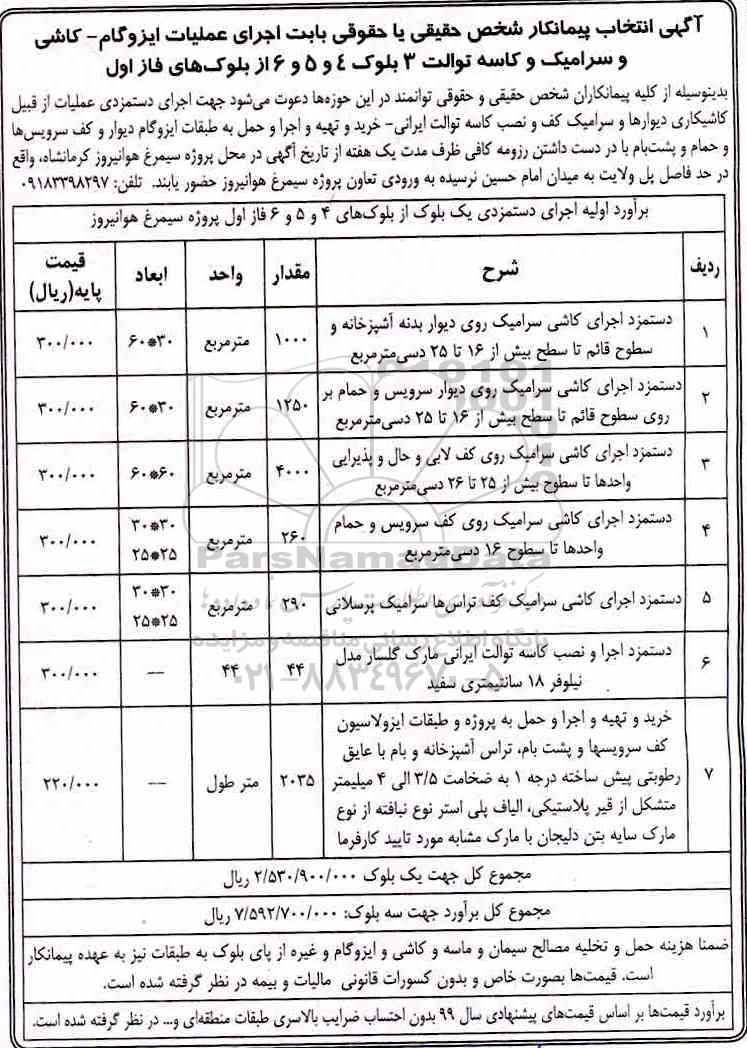 آگهی انتخاب پیمانکار شخص حقیقی یا حقوقی بابت اجرای عملیات ایزوگام- کاشی
و سرامیک و کاسه توالت ۳ بلوک ٤ و ۵ و ۶ از بلوک‌های فاز اول
بدینوسیله از کلیه پیمانکاران شخص حقیقی و حقوقی توانمند در این حوزه‌ها دعوت می‌شود جهت اجرای دستمزدی عملیات از قبیل
کاشیکاری دیوارها و سرامیک کف و نصب کاسه توالت ایرانی- خرید و تهیه و اجرا و حمل به طبقات ایزوگام دیوار و کف سرویس‌ها
و حمام و پشت‌بام با در دست داشتن رزومه کافی ظرف مدت یک هفته از تاریخ آگهی در محل پروژه سیمرغ هوانیروز کرمانشاه، واقع
در حد فاصل پل ولایت به میدان امام حسین نرسیده به ورودی تعاون پروژه سیمرغ هوانیروز حضور یابند. تلفن: ۰۹۱۸۳۳۹۸۲۹۷
برآورد اولیه اجرای دستمزدی یک بلوک از بلوک‌های ۴ و ۵ و ۶ فاز اول پروژه سیمرغ هوانیروز
ردیف شرح مقدار واحد ابعاد قیمت پایه(ریال)
۱ دستمزد اجرای کاشی سرامیک روی دیوار بدنه آشپزخانه و
سطوح قائم تا سطح بیش از ۱۶ تا ۲۵ دسی‌مترمربع ۱۰۰۰ مترمربع ۳۰*۶۰ ۳۰۰/۰۰۰
۲ دستمزد اجرای کاشی سرامیک روی دیوار سرویس و حمام بر
روی سطوح قائم تا سطح بیش از ۱۶ تا ۲۵ دسی‌مترمربع ۱۲۵۰ مترمربع ۳۰*۶۰ ۳۰۰/۰۰۰
۳ دستمزد اجرای کاشی سرامیک روی کف لابی و حال و پذیرایی
واحدها تا سطوح بیش از ۲۵ تا ۲۶ دسی‌مترمربع ۴۰۰۰ مترمربع ۶۰*۶۰ ۳۰۰/۰۰۰
۴ دستمزد اجرای کاشی سرامیک روی کف سرویس و حمام
واحدها تا سطوح ۱۶ دسی‌مترمربع ۲۶۰ مترمربع ۳۰*۳۰
۲۵*۲۵ ۳۰۰/۰۰۰
۵ دستمزد اجرای کاشی سرامیک کف تراس‌ها سرامیک پرسلانی ۲۹۰ مترمربع ۳۰*۳۰
۲۵*۲۵ ۳۰۰/۰۰۰
۶ دستمزد اجرا و نصب کاسه توالت ایرانی مارک گلسار مدل
نیلوفر ۱۸ سانتیمتری سفید ۴۴ ۴۴ --- ۳۰۰/۰۰۰
۷ خرید و تهیه و اجرا و حمل به پروژه و طبقات ایزولاسیون
کف سرویسها و پشت بام، تراس آشپزخانه و بام با عایق
رطوبتی پیش ساخته درجه ۱ به ضخامت ۳/۵ الی ۴ میلیمتر
متشکل از قیر پلاستیکی، الیاف پلی استر نوع نبافته از نوع
مارک سایه بتن دلیجان با مارک مشابه مورد تایید کارفرما ۲۰۳۵ متر طول --- ۲۲۰/۰۰۰
مجموع کل جهت یک بلوک ۲/۵۳۰/۹۰۰/۰۰۰ ریال
مجموع کل برآورد جهت سه بلوک: ۷/۵۹۲/۷۰۰/۰۰۰ ریال
ضمنا هزینه حمل و تخلیه مصالح سیمان و ماسه و کاشی و ایزوگام و غیره از پای بلوک به طبقات نیز به عهده پیمانکار
است. قیمت‌ها بصورت خاص و بدون کسورات قانونی مالیات و بیمه در نظر گرفته شده است.
برآورد قیمت‌ها بر اساس قیمت‌های پیشنهادی سال ۹۹ بدون احتساب ضرایب بالاسری طبقات منطقه‌ای و... در نظر گرفته شده است.
ParsNamadData
پایگاه اطلاع رسانی مناقصه و مزایده
۰۲۱-۸۸۳۴۹۶۷۰-۵